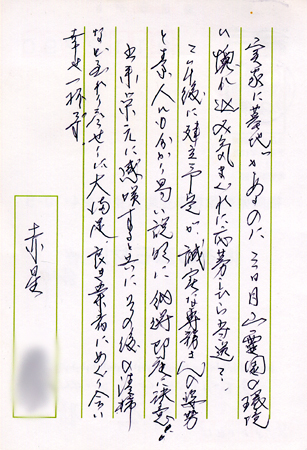 実家に墓地があるのに三日月山霊園の環境
に惚れ込み気まぐれに応募したら当選で
二年後に建立予定が、誠実な専務さんへの姿勢
と素人にも分かり易い説明に納得即座に決意!!
出来栄えに感嘆すると共にその後の清掃
至れり尽せりに大満足良き業者にめぐり合い
幸せ一杯です。
赤星